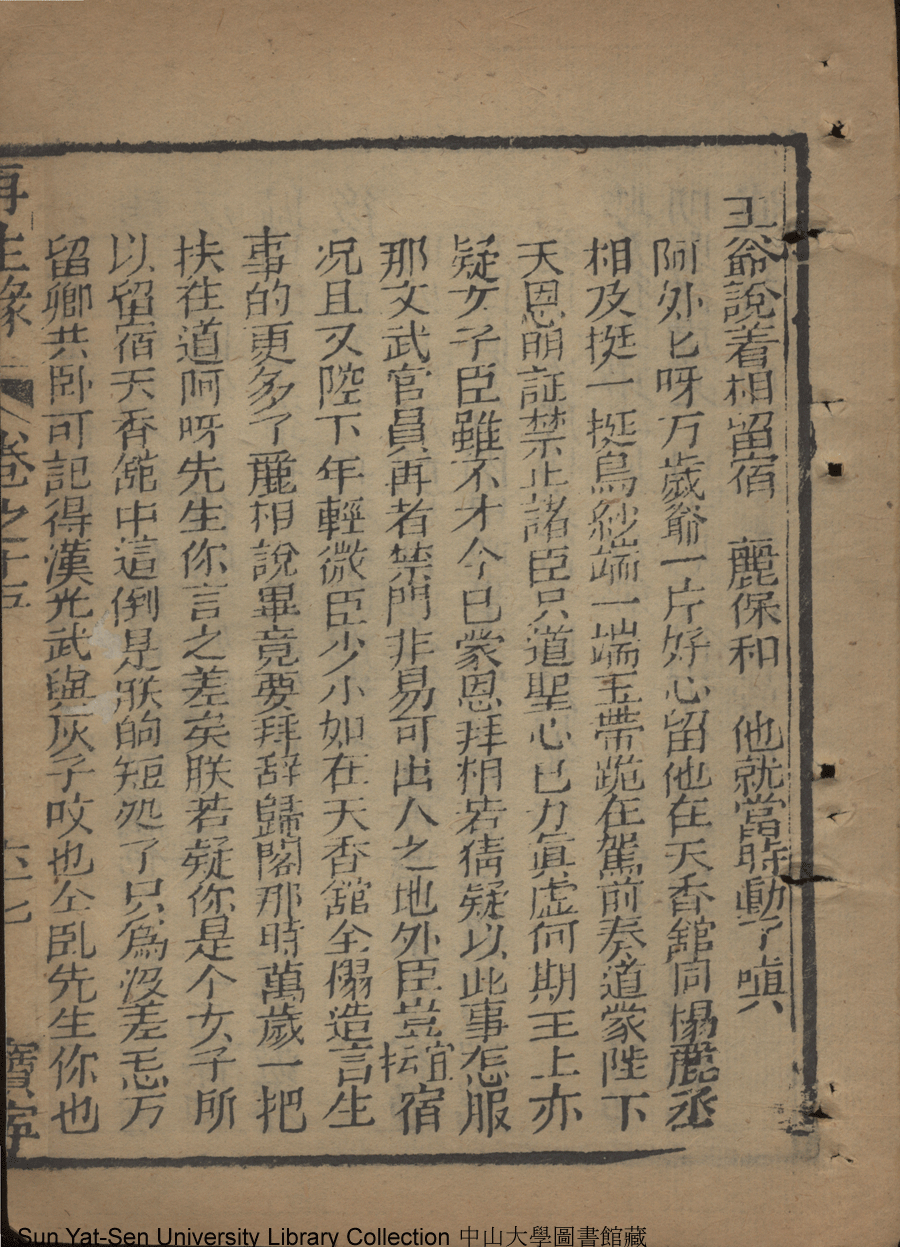 王爺說着相留宿　麗保和　他就當時動了嗔
阿外匕呀万歲爺一片好心留他在天香舘同榻麗丞
相及挺一挺烏紗端一端玉帶跪在駕前奏道蒙陛下
天恩朋証禁止諸臣只道聖心已力真虛何期王上亦
疑女子臣雖不才今已蒙恩拜相若猜疑以此事怎服
那文武官員再者禁門非易可出人之地外臣豈宜抎宿
况且又陸下年輕微臣少小如在天香舘仝榻造言生
事的更多了麗相說畢竟要拜辞歸閣那時萬歲一把
扶在道阿呀先生你言之差矣朕若疑你是个女子所
以留宿天香舘中這倒是朕的短処了只為没差忘万
留卿共卧可記得漢光武與灰子咬也仝臥先生你也
再生緣
卷之十五
六七
寶寧
Sun Yat-Sen University Library Collection 中山大學圖書館藏